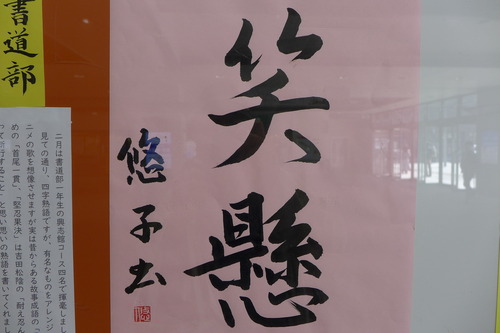 書道部
笑
懸
悠子書
二月は書道部一年生の興志館コース四名で揮毫しまし
見ての通り、四字熟語ですが、有名なものをアレンジ
ニメの歌を想像させますが実は昔からある故事成語の「
めの「首尾一貫」、「堅忍果決」は吉田松陰の「耐え忍ん
って断行すること」と思い思いの熟語を書いてくれまし